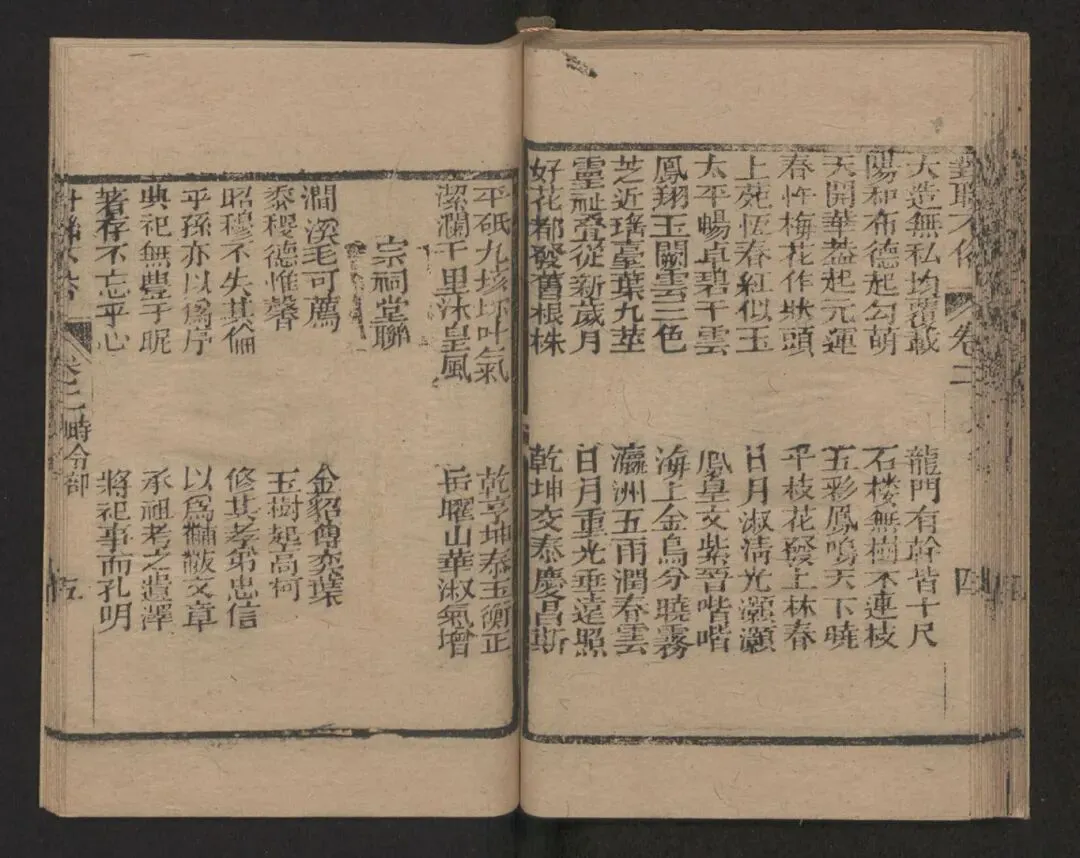 對聯不俗 卷二 四
大造無私均覆載 龍門有幹皆十尺
陽和布德起勾萌 石楼無樹不連枝
天開華盖起元運 五彩鳳鳴天下曉
春忤梅花作狀頭 平枝花發上林春
上苑恆春紅似玉 日月淑淸光灝灝
太平暢卓碧干雲 鳳皇文紫晉喈喈
鳳翔玉闕雲三色 海上金烏分曉霧
芝近瑤臺葉九莖 瀛洲五雨潤春雲
靈祉叠從新歲月 日月重光垂遠照
好花都發舊根株 乾坤交泰慶昌斯
平砥九垓环叶氣 乾亨坤泰玉衡正
潔瀾千里沐皇風 岳曜山華淑氣增
宗祠堂聯
澗溪毛可薦 金貂傳奕葉
黍稷德惟馨 玉樹起高柯
昭穆不失其倫 修其孝弟忠信
子孫亦以爲序 以爲黼黻文章
典祀無豊于昵 承祖考之遺澤
著存不忘乎心 將祀事而孔明
卷二 時令部 五